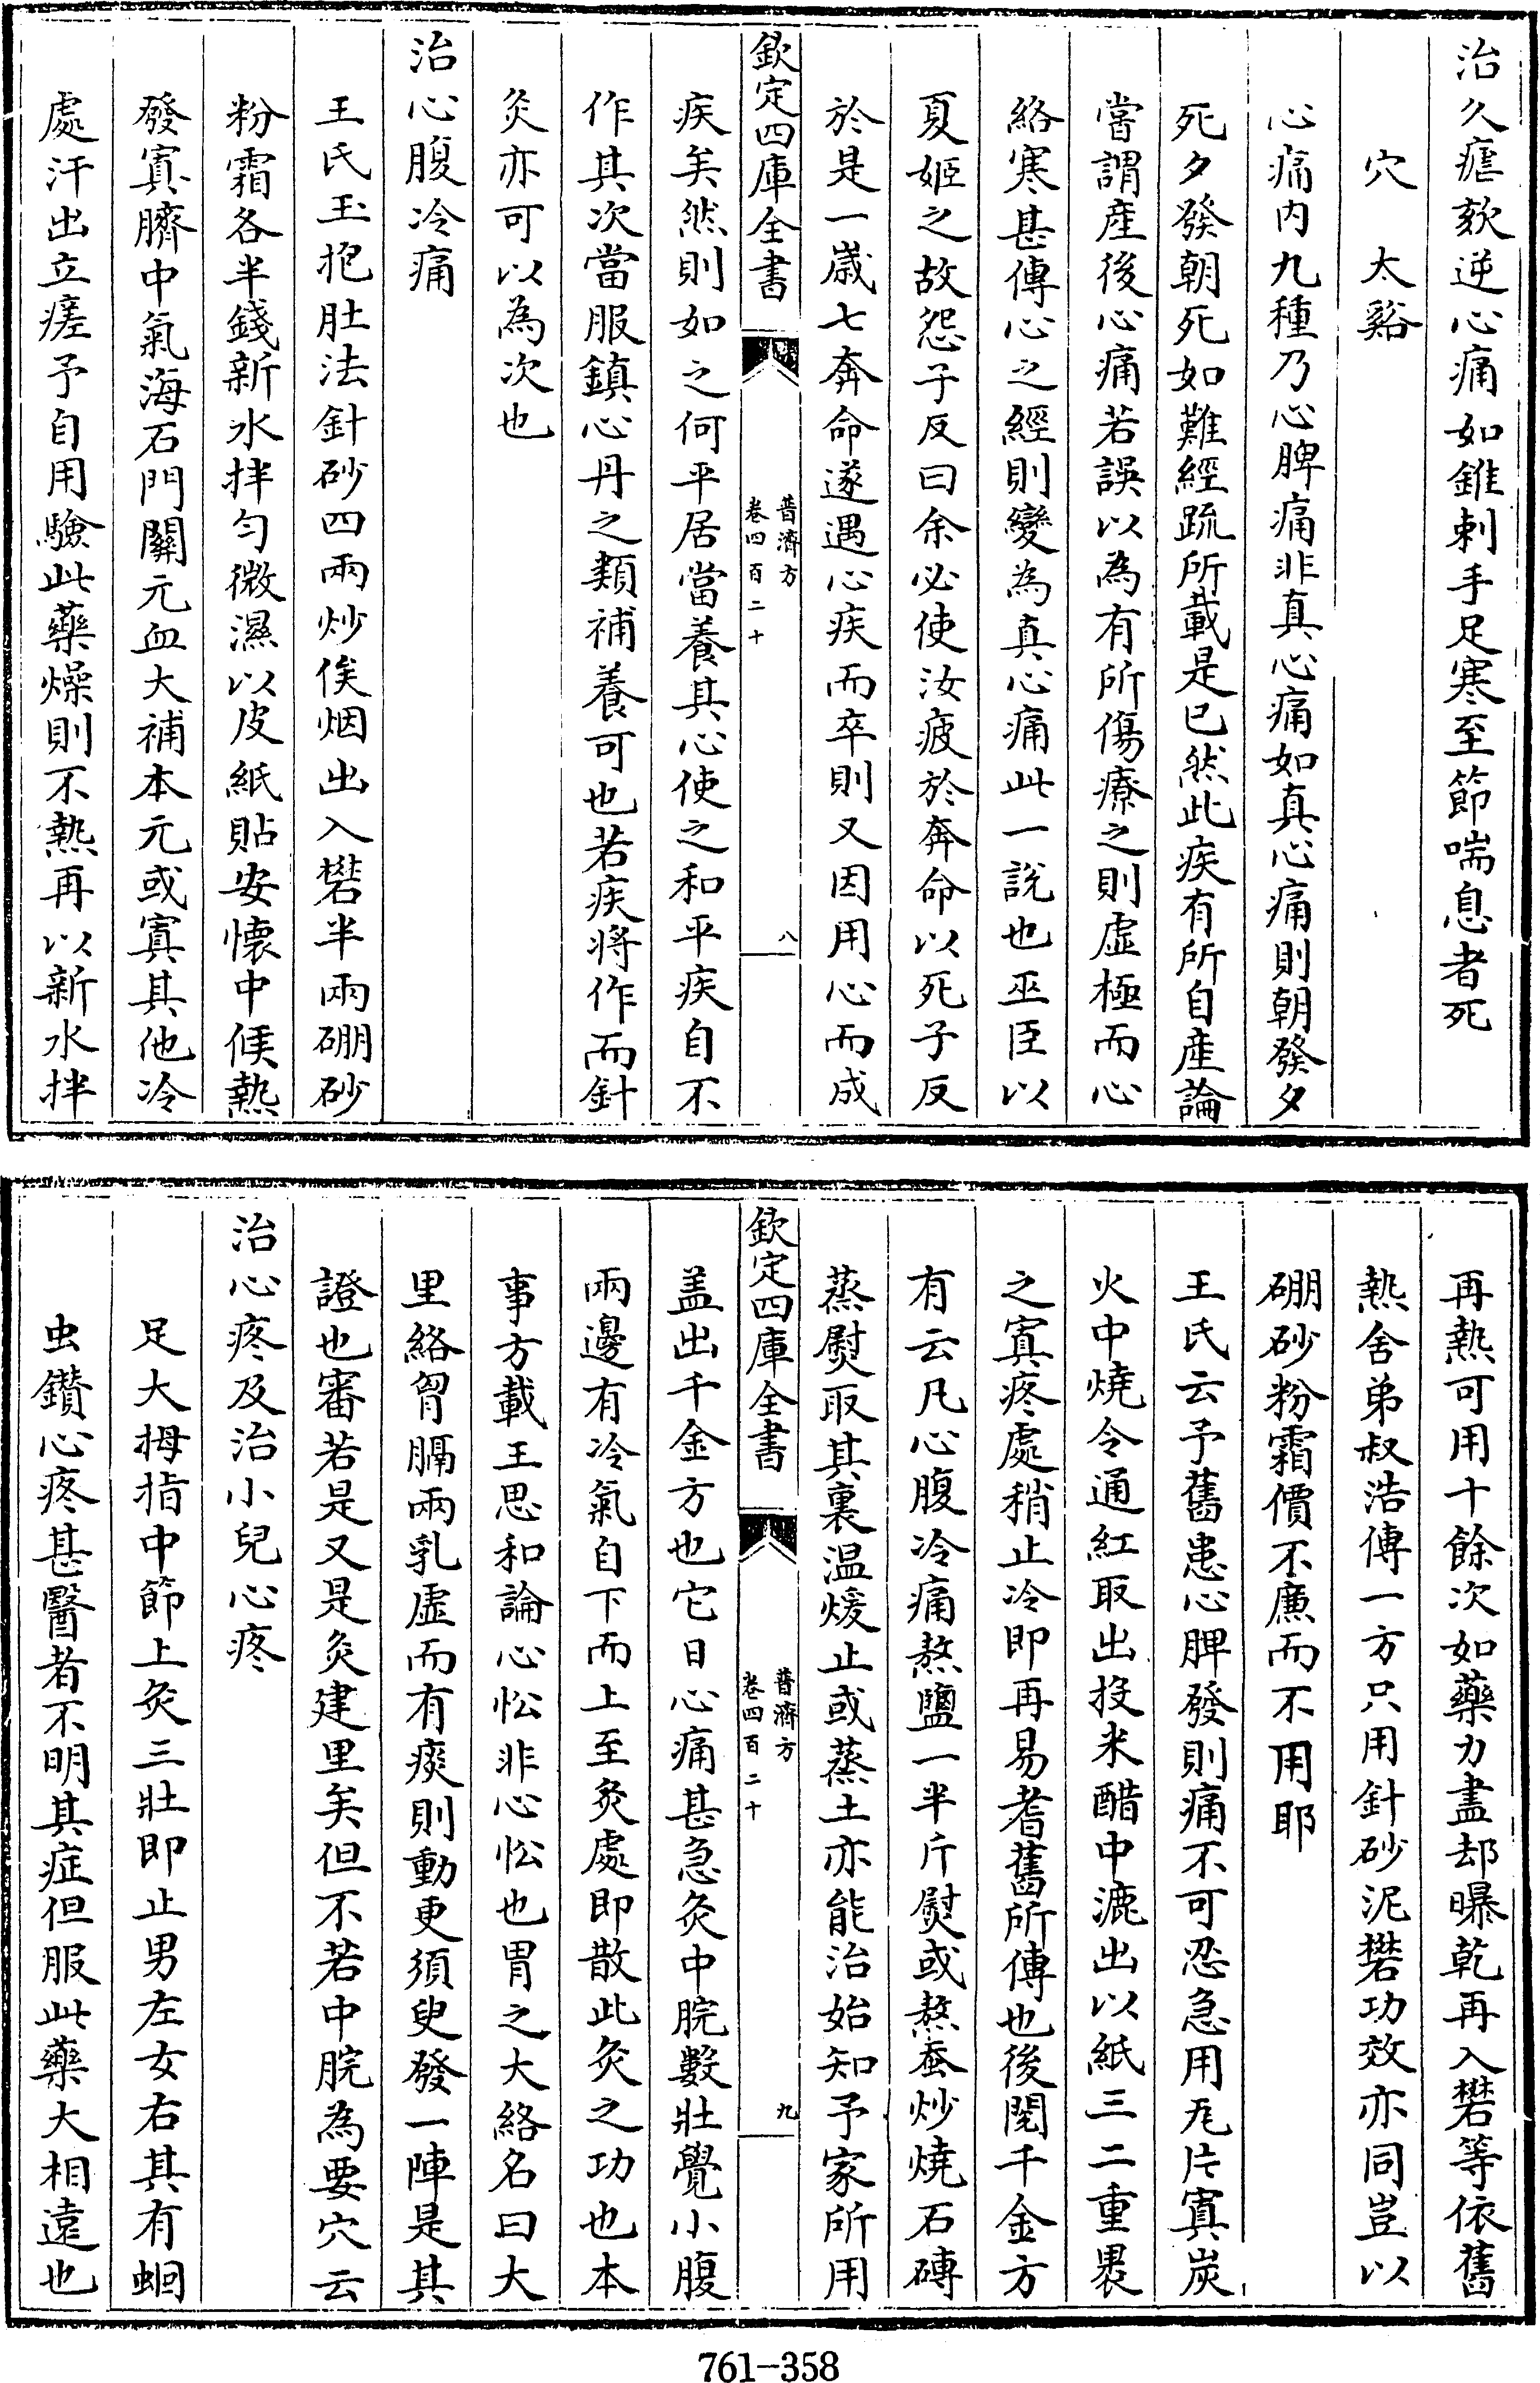 治久瘧欬逆心痛如錐刺手足寒至節喘息者死
穴　太谿
心痛内九種乃心脾痛非真心痛如真心痛則朝發夕
死夕發朝死如難經疏所載是已然此疾有所自産論
嘗謂産後心痛若誤以為有所傷療之則虛極而心
絡寒甚傳心之經則變為真心痛此一說也巫臣以
夏姬之故怨子反曰余必使汝疲於奔命以死子反
於是一嵗七奔命遂遇心疾而卒則又因用心而成
欽定四庫全書
普濟方
卷四百二十
八
疾矣然則如之何平居當養其心使之和平疾自不
作其次當服鎮心丹之類補養可也若疾將作而針
灸亦可以為次也
治心腹冷痛
王氏玉抱肚法針砂四兩炒俟烟出入礬半兩硼砂
粉霜各半錢新水拌勻微濕以皮紙貼安懐中候熱
發寘臍中氣海石門關元血大補本元或寘其他冷
處汗出立瘥予自用驗此藥燥則不熱再以新水拌
再熱可用十餘次如藥力盡却曝乾再入礬等依舊
熱舍弟叔浩傳一方只用針砂泥礬功效亦同豈以
硼砂粉霜價不廉而不用耶
王氏云予舊患心脾發則痛不可忍急用瓦片寘炭
火中燒令通紅取出投米醋中漉出以紙三二重褁
之寘疼處稍止冷即再易耆舊所傳也後閲千金方
有云凡心腹冷痛熬鹽一半斤熨或熬蚕炒燒石磚
蒸熨取其裏温煖止或蒸土亦能治始知予家所用
欽定四庫全書
普濟方
卷四百二十
九
盖出千金方也它日心痛甚急灸中脘數壯覺小腹
兩邊有冷氣自下而上至灸處即散此灸之功也本
事方載王思和論心忪非心忪也胃之大絡名曰大
里絡胷膈兩乳虛而有痰則動更須臾發一陣是其
證也審若是又是灸建里矣但不若中脘為要穴云
治心疼及治小兒心疼
足大拇指中節上灸三壯即止男左女右其有蛔
虫鑽心疼甚醫者不明其症但服此藥大相逺也
761-358